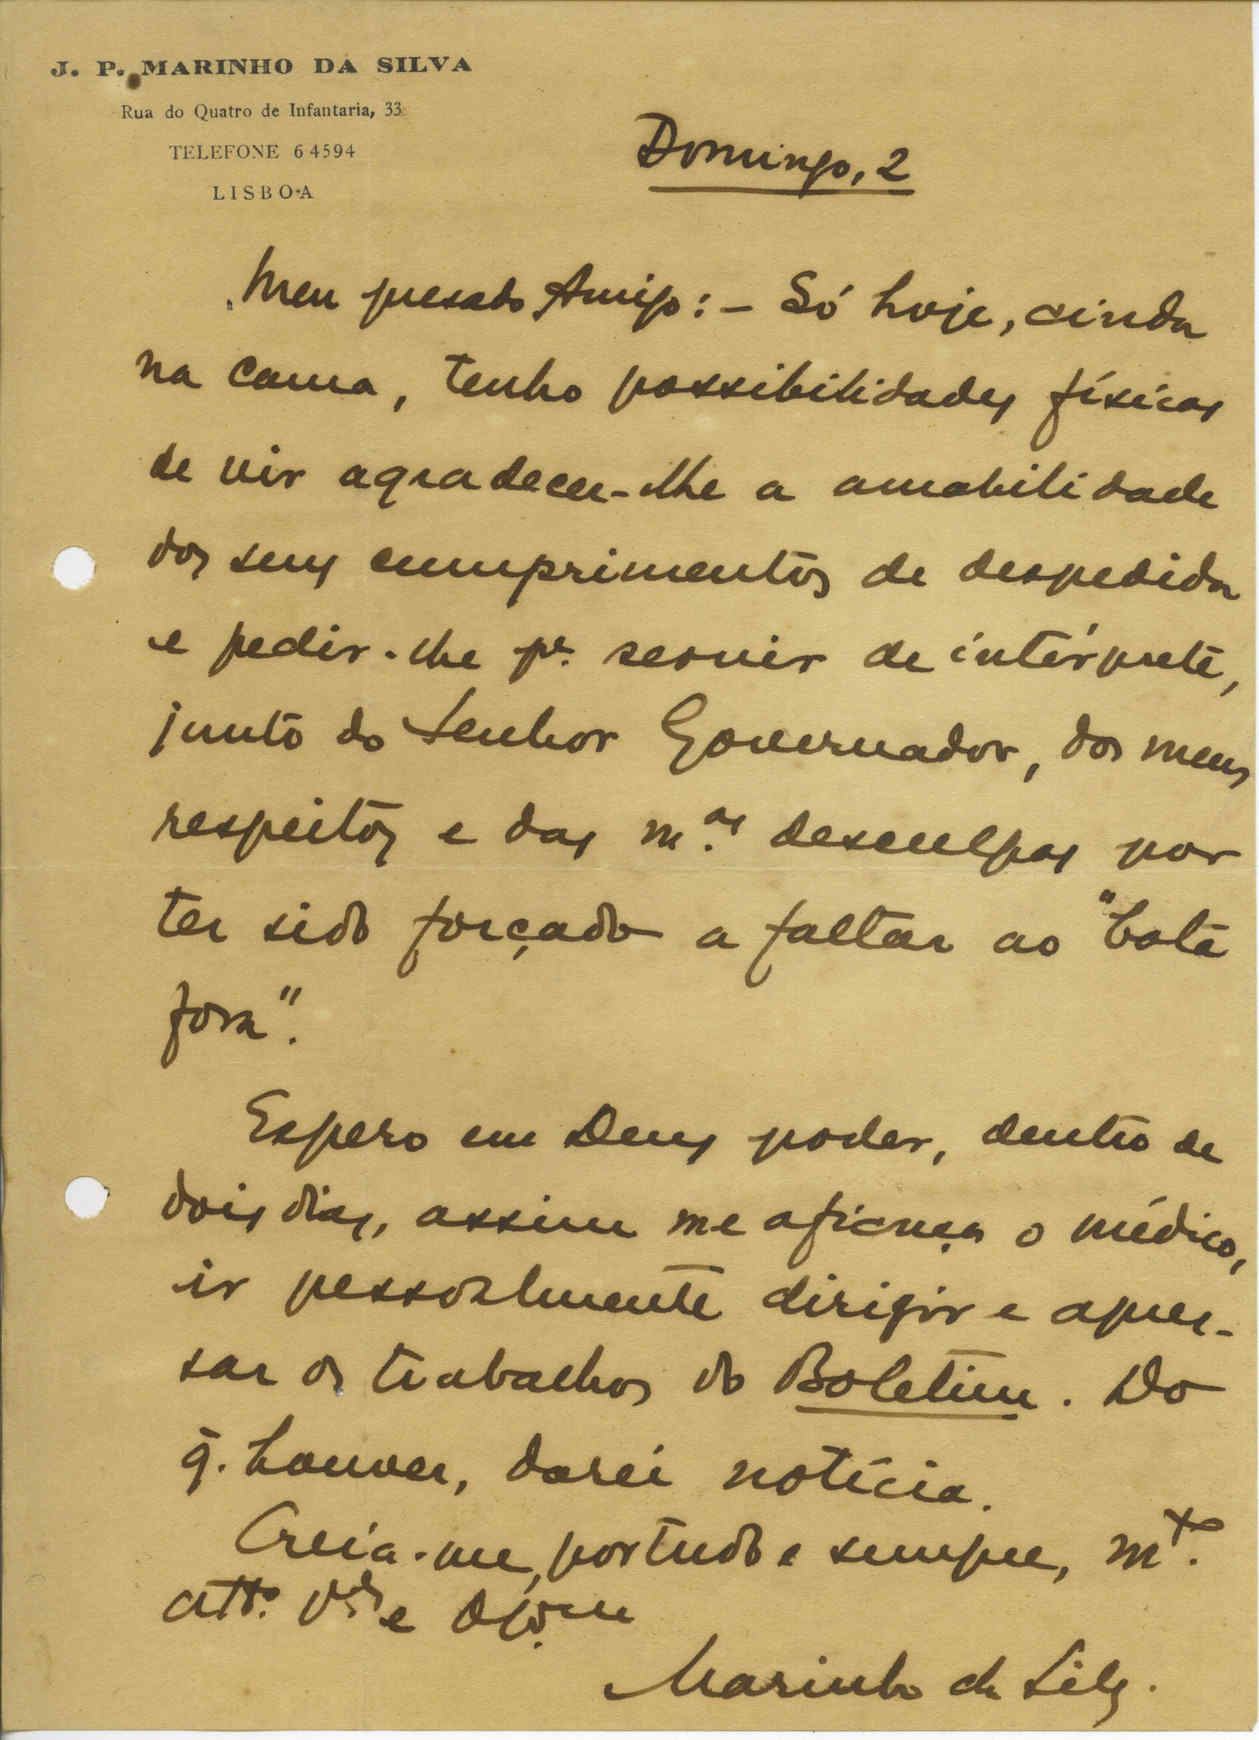 J. P. MARINHO DA SILVA
Rua do Quatro de Infantaria, 33
TELEFONE 64594
LISBOA
Domingo, 2
Meu presado Amigo: - Só hoje, ainda
na cama, tenho possibilidades físicas
de vir agradecer-lhe a amabilidade
dos seus cumprimentos de despedida
e pedir-lhe pr. servir de intérprete,
junto do Senhor Governador, dos meus
respeitos e das m.as desculpas por
ter sido forçado a faltar ao "bota
fora".
Espero em Deus poder, dentro de
dois dias, assim me afiança o médico,
ir pessoalmente dirigir e apres-
sar os trabalhos do Boletim. Do
q. houver, darei notícia.
Creia-me, por tudo e sempre, mto.
attº. e
Marinho da Silva.